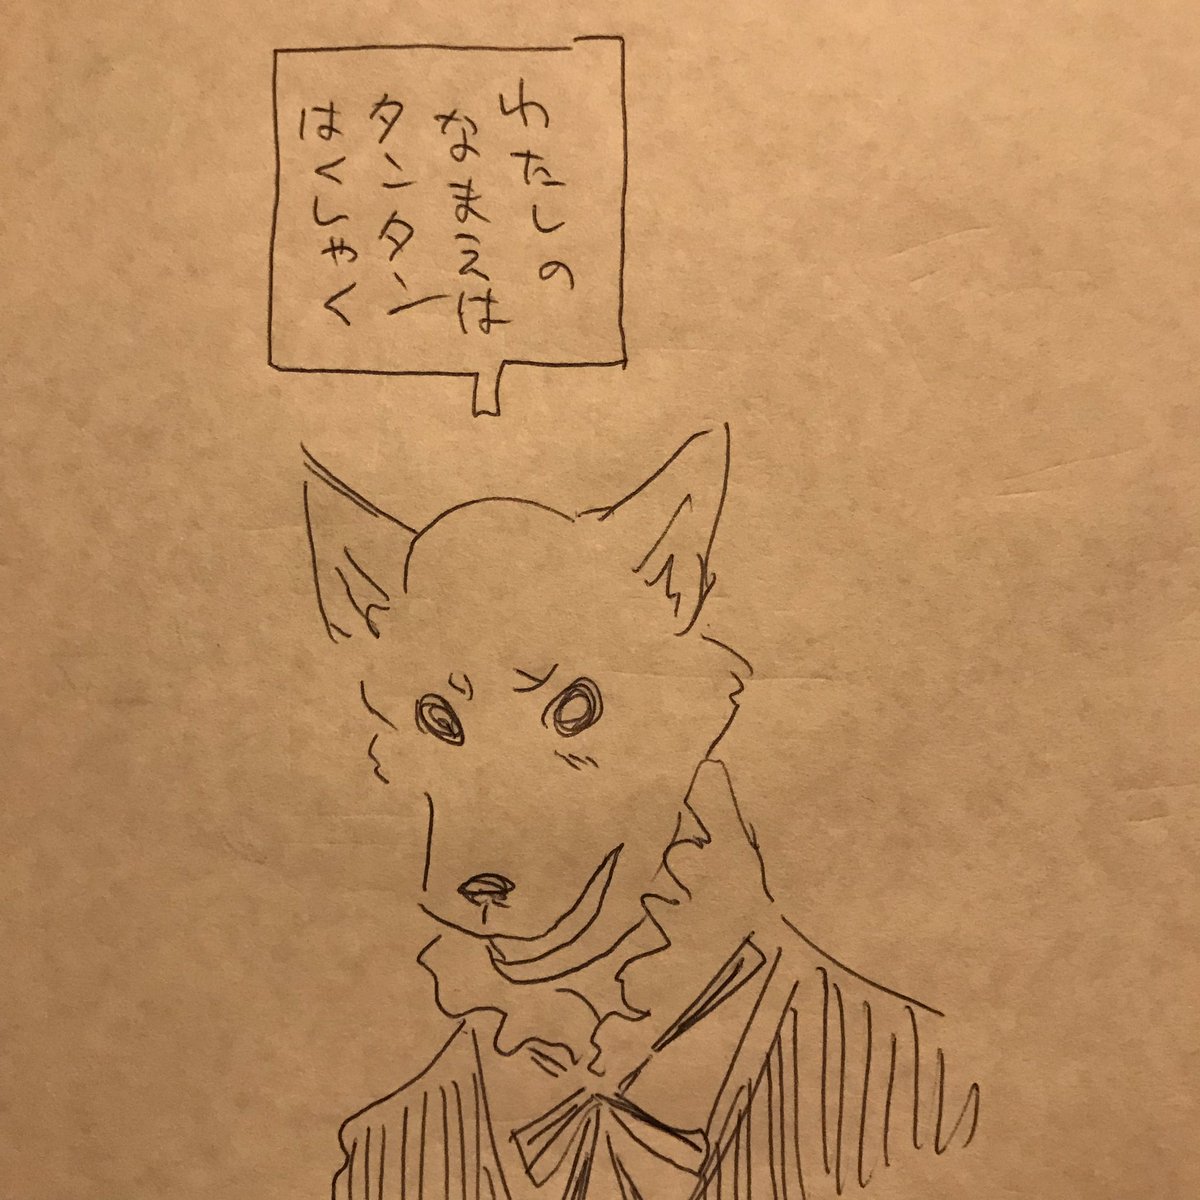 わたしの
なまえは
タンタン
はくしゃく